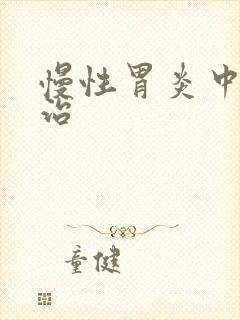 慢性胃炎中
治
童健